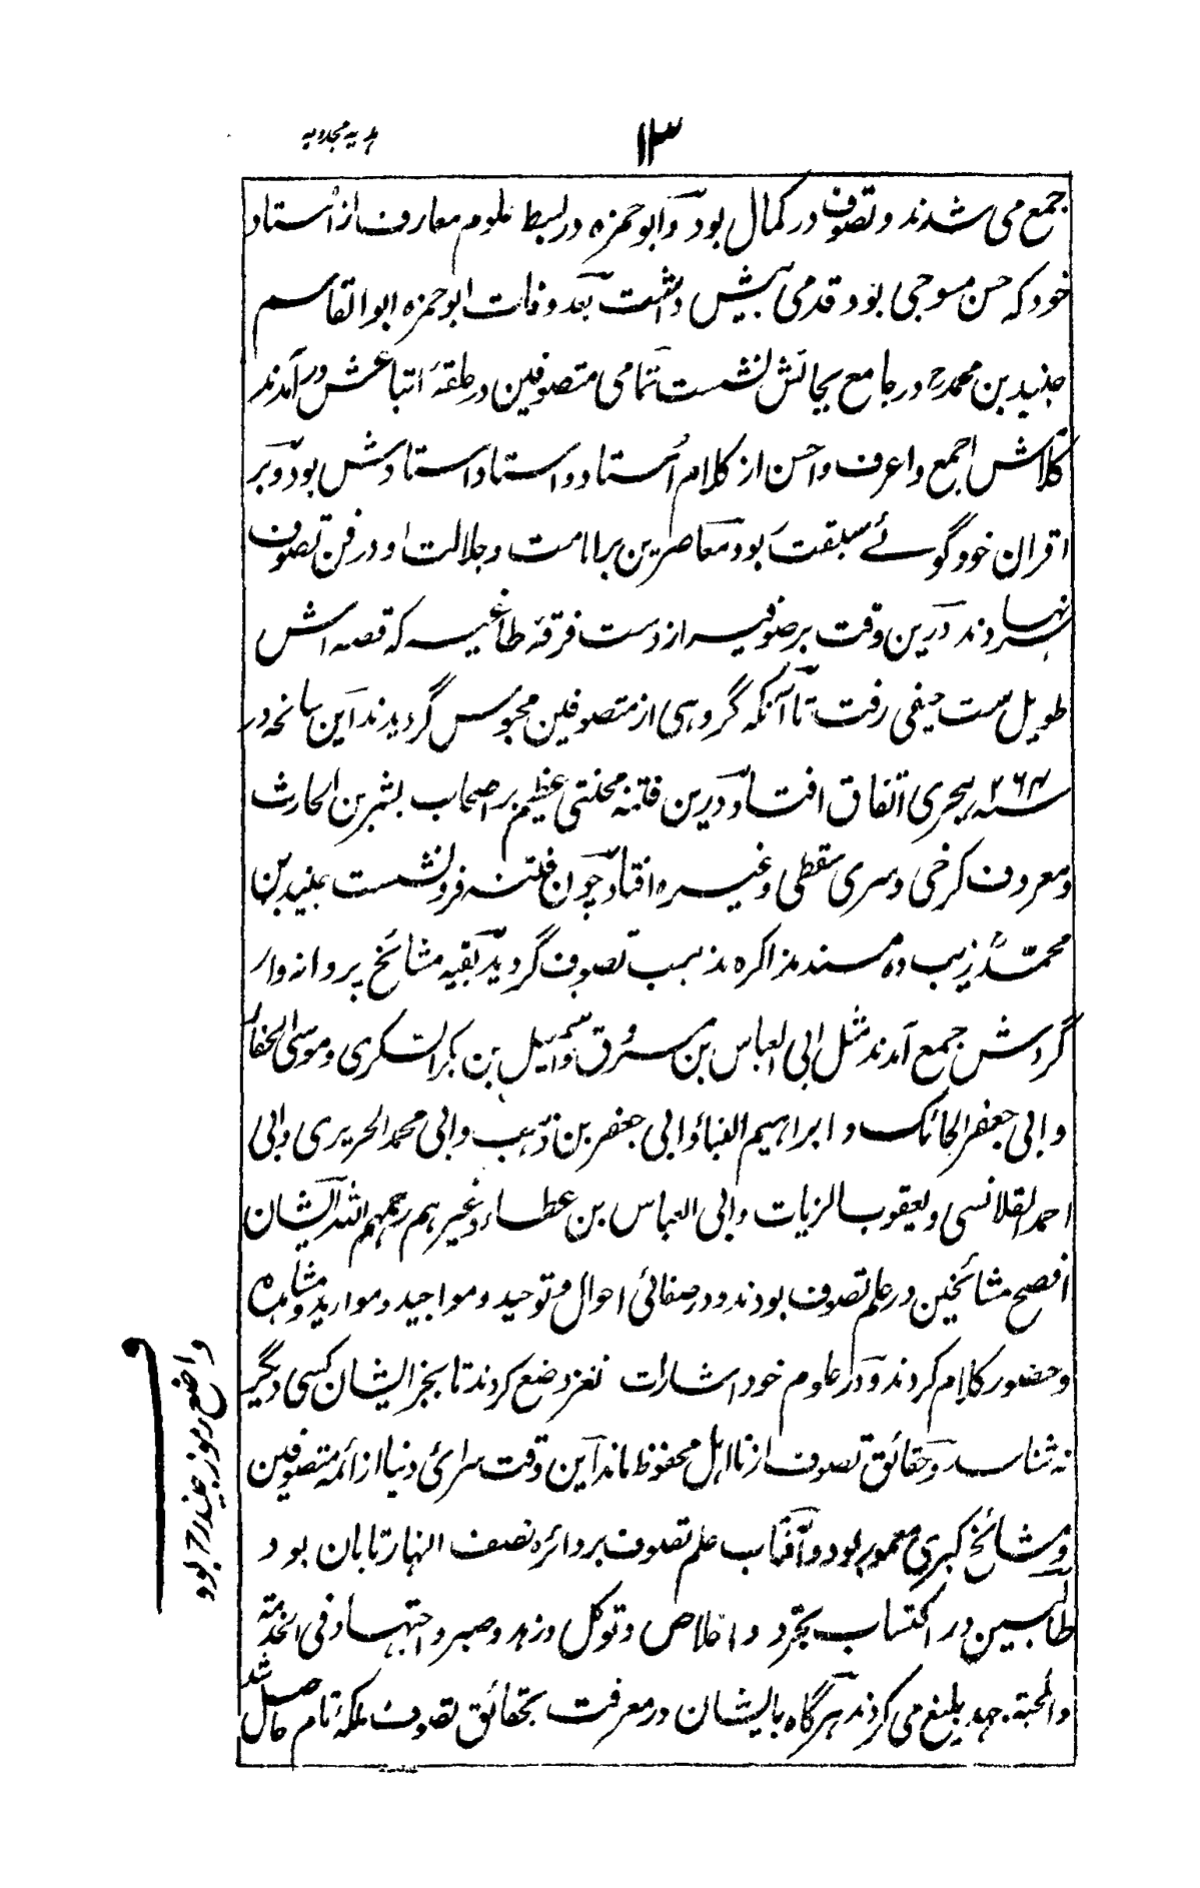 ۱۳
ہدیہ مجددیہ
جمع می شدند و تصوف در کمال بود و ابو حمزہ در بسط علوم معارف از اُستاد
خود کہ حسن مسوحی بود قدمی بیش داشت بعد وفات ابو حمزہ ابو القاسم
جنید بن محمد رح در جامع بجائش نشست تمامی متصوفین در حلقۂ اتباعش در آمدند
کلامش اجمع و اعرف و احسن از کلام اُستاد و استاد استادش بود و بر
اقران خود گوئے سبقت بود معاصرین بر امامت و جلالت او در فن تصوف
درین وقت بر صوفیہ از دست فرقۂ طاغیہ کہ قصہ اش
طویل ست حیفی رفت تا آنکہ گروہی از متصوفین محبوس گردیدند این سانحہ در
سنہ ۲۶۴ ہجری اتفاق افتاد درین فتنہ محنتی عظیم بر اصحاب بشر بن الحارث
و معروف کرخی و سری سقطی و غیرہ افتاد چون فتنہ فرو نشست جنید بن
محمدؒ زیب دہ مسند مذاکرہ مذہب تصوف گردید بقیہ مشائخ پروانہ وار
گردش جمع آمدند مثل ابی العباس بن مسروق و اسمٰعیل بن بکر السکری و موسی الخفاز
و ابی جعفر الحائک و ابراہیم و ابی جعفر بن وہب و ابی محمد الحریری و ابی
احمد القلانسی و یعقوب الزیات و ابی العباس بن عطاء و غیرہم رحمہم اللہ ایشان
افصح مشائخین در علم تصوف بودند و در صفائی احوال و توحید و مواجید و موارید و مشاہدہ
و حضور کلام کردند و در علوم خود اشارات نغز وضع کردند تا بجز ایشان کسی دیگر
نہ شناسد و حقائق تصوف از نااہل محفوظ ماند این وقت سرائ دنیا از ائمۂ متصوفین
و مشائخ کبری معمور بود و آفتاب علم تصوف بر دائرہ نصف النہار تابان بود
طالبین در اکتساب تجرد و اخلاص و توکل و زہد و صبر و اجتہاد فی الخدمۃ
و المحبۃ جہد بلیغ می کردند ہرگاہ بایشان در معرفت بحقائق تصوف ملکۂ تام حاصل شد
واضع رموز جنید رح بود